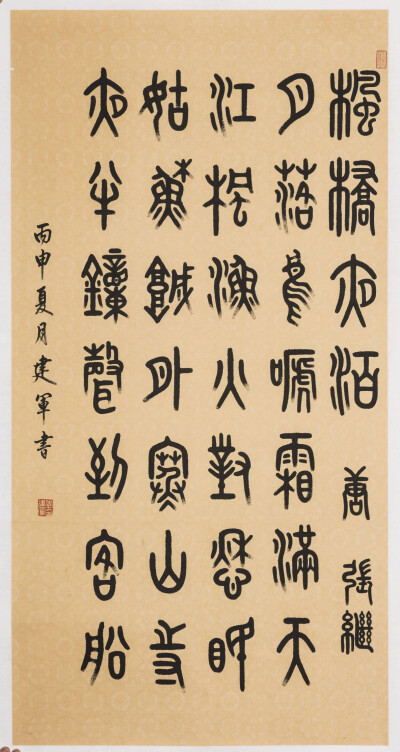 楓橋夜泊 唐 張繼
月落烏嗁霜滿天
江楓漁火對愁眠
姑蘇城外寒山寺
夜半鐘聲到客船
丙申夏月建軍書